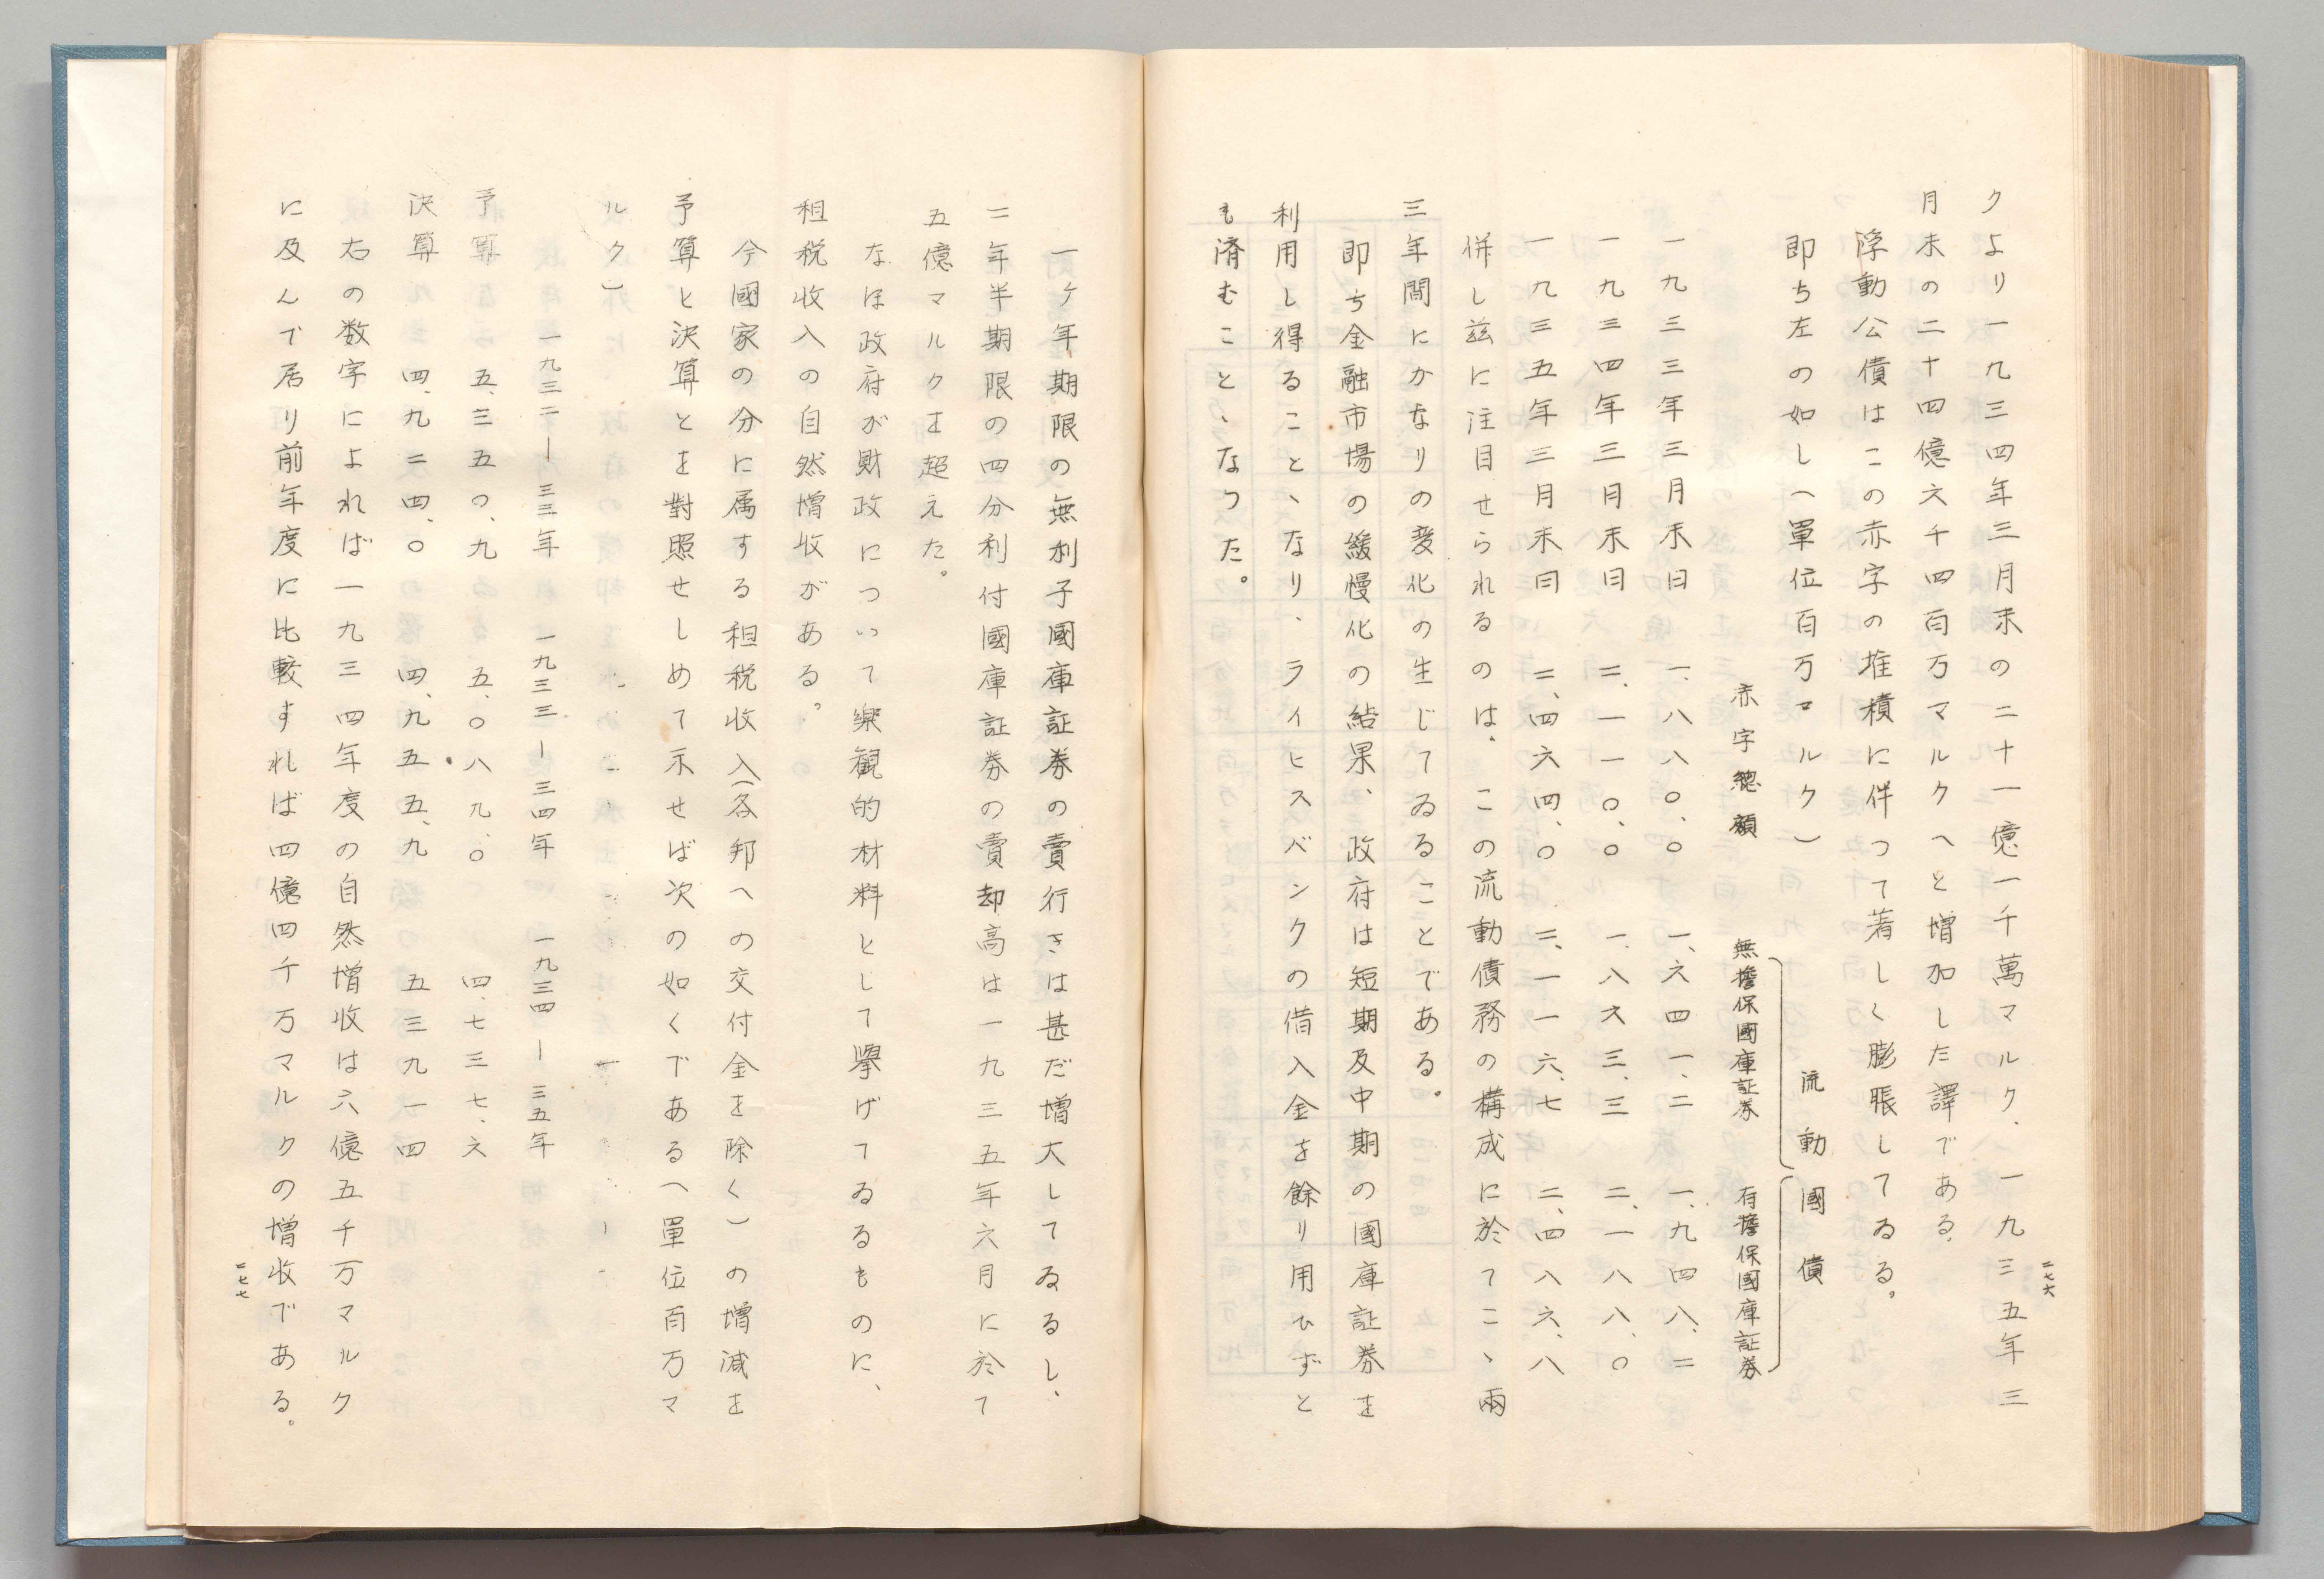 二七六
クより一九三四年三月末の二十一億一千萬マルク、一九三五年三
月末の二十四億六千四百万マルクへと増加した譯である、
浮動公債はこの赤字の堆積に伴つて著しく膨脹してゐる。
即ち左の如し(單位百万マルク)
流動國債
赤字總額 無擔保國庫証券 有擔保國庫証券
一九三三年三月末日 一、八八〇、〇 一、六四一、二 一、九四八、二
一九三四年三月末日 二、一一〇、〇 一、八六三、三 二、一八八、〇
一九三五年三月末日 二、四六四、〇 二、一一六、七 二、四八六、八
併し玆に注目せられるのは、この流動債務の構成に於てこゝ兩
三年間にかなりの変化の生じてゐることである。
即ち金融市場の緩慢化の結果、政府は短期及中期の國庫証券を
利用し得ることゝなり、ライヒスバンクの借入金を餘り用ひずと
も済むことゝなつた。
一ヶ年期限の無利子國庫証券の賣行きは甚だ増大してゐるし、
二年半期限の四分利付國庫証券の賣却高は一九三五年六月に於て
五億マルクを超えた。
なほ政府が財政について樂観的材料として擧げてゐるものに、
租税收入の自然増收がある。
今國家の分に属する租税收入(各邦への交付金を除く)の増減を
予算と決算とを對照せしめて示せば次の如くである(單位百万マ
ルク)
一九三二―三三年 一九三三―三四年 一九三四―三五年
予算 五、三五〇、九 五、〇八九、〇 四、七三七、六
決算 四、九二四、〇 四、九五五、九 五三九一四
右の数字によれば一九三四年度の自然増收は六億五千万マルク
に及んで居り前年度に比較すれば四億四千万マルクの増收である。
二七七